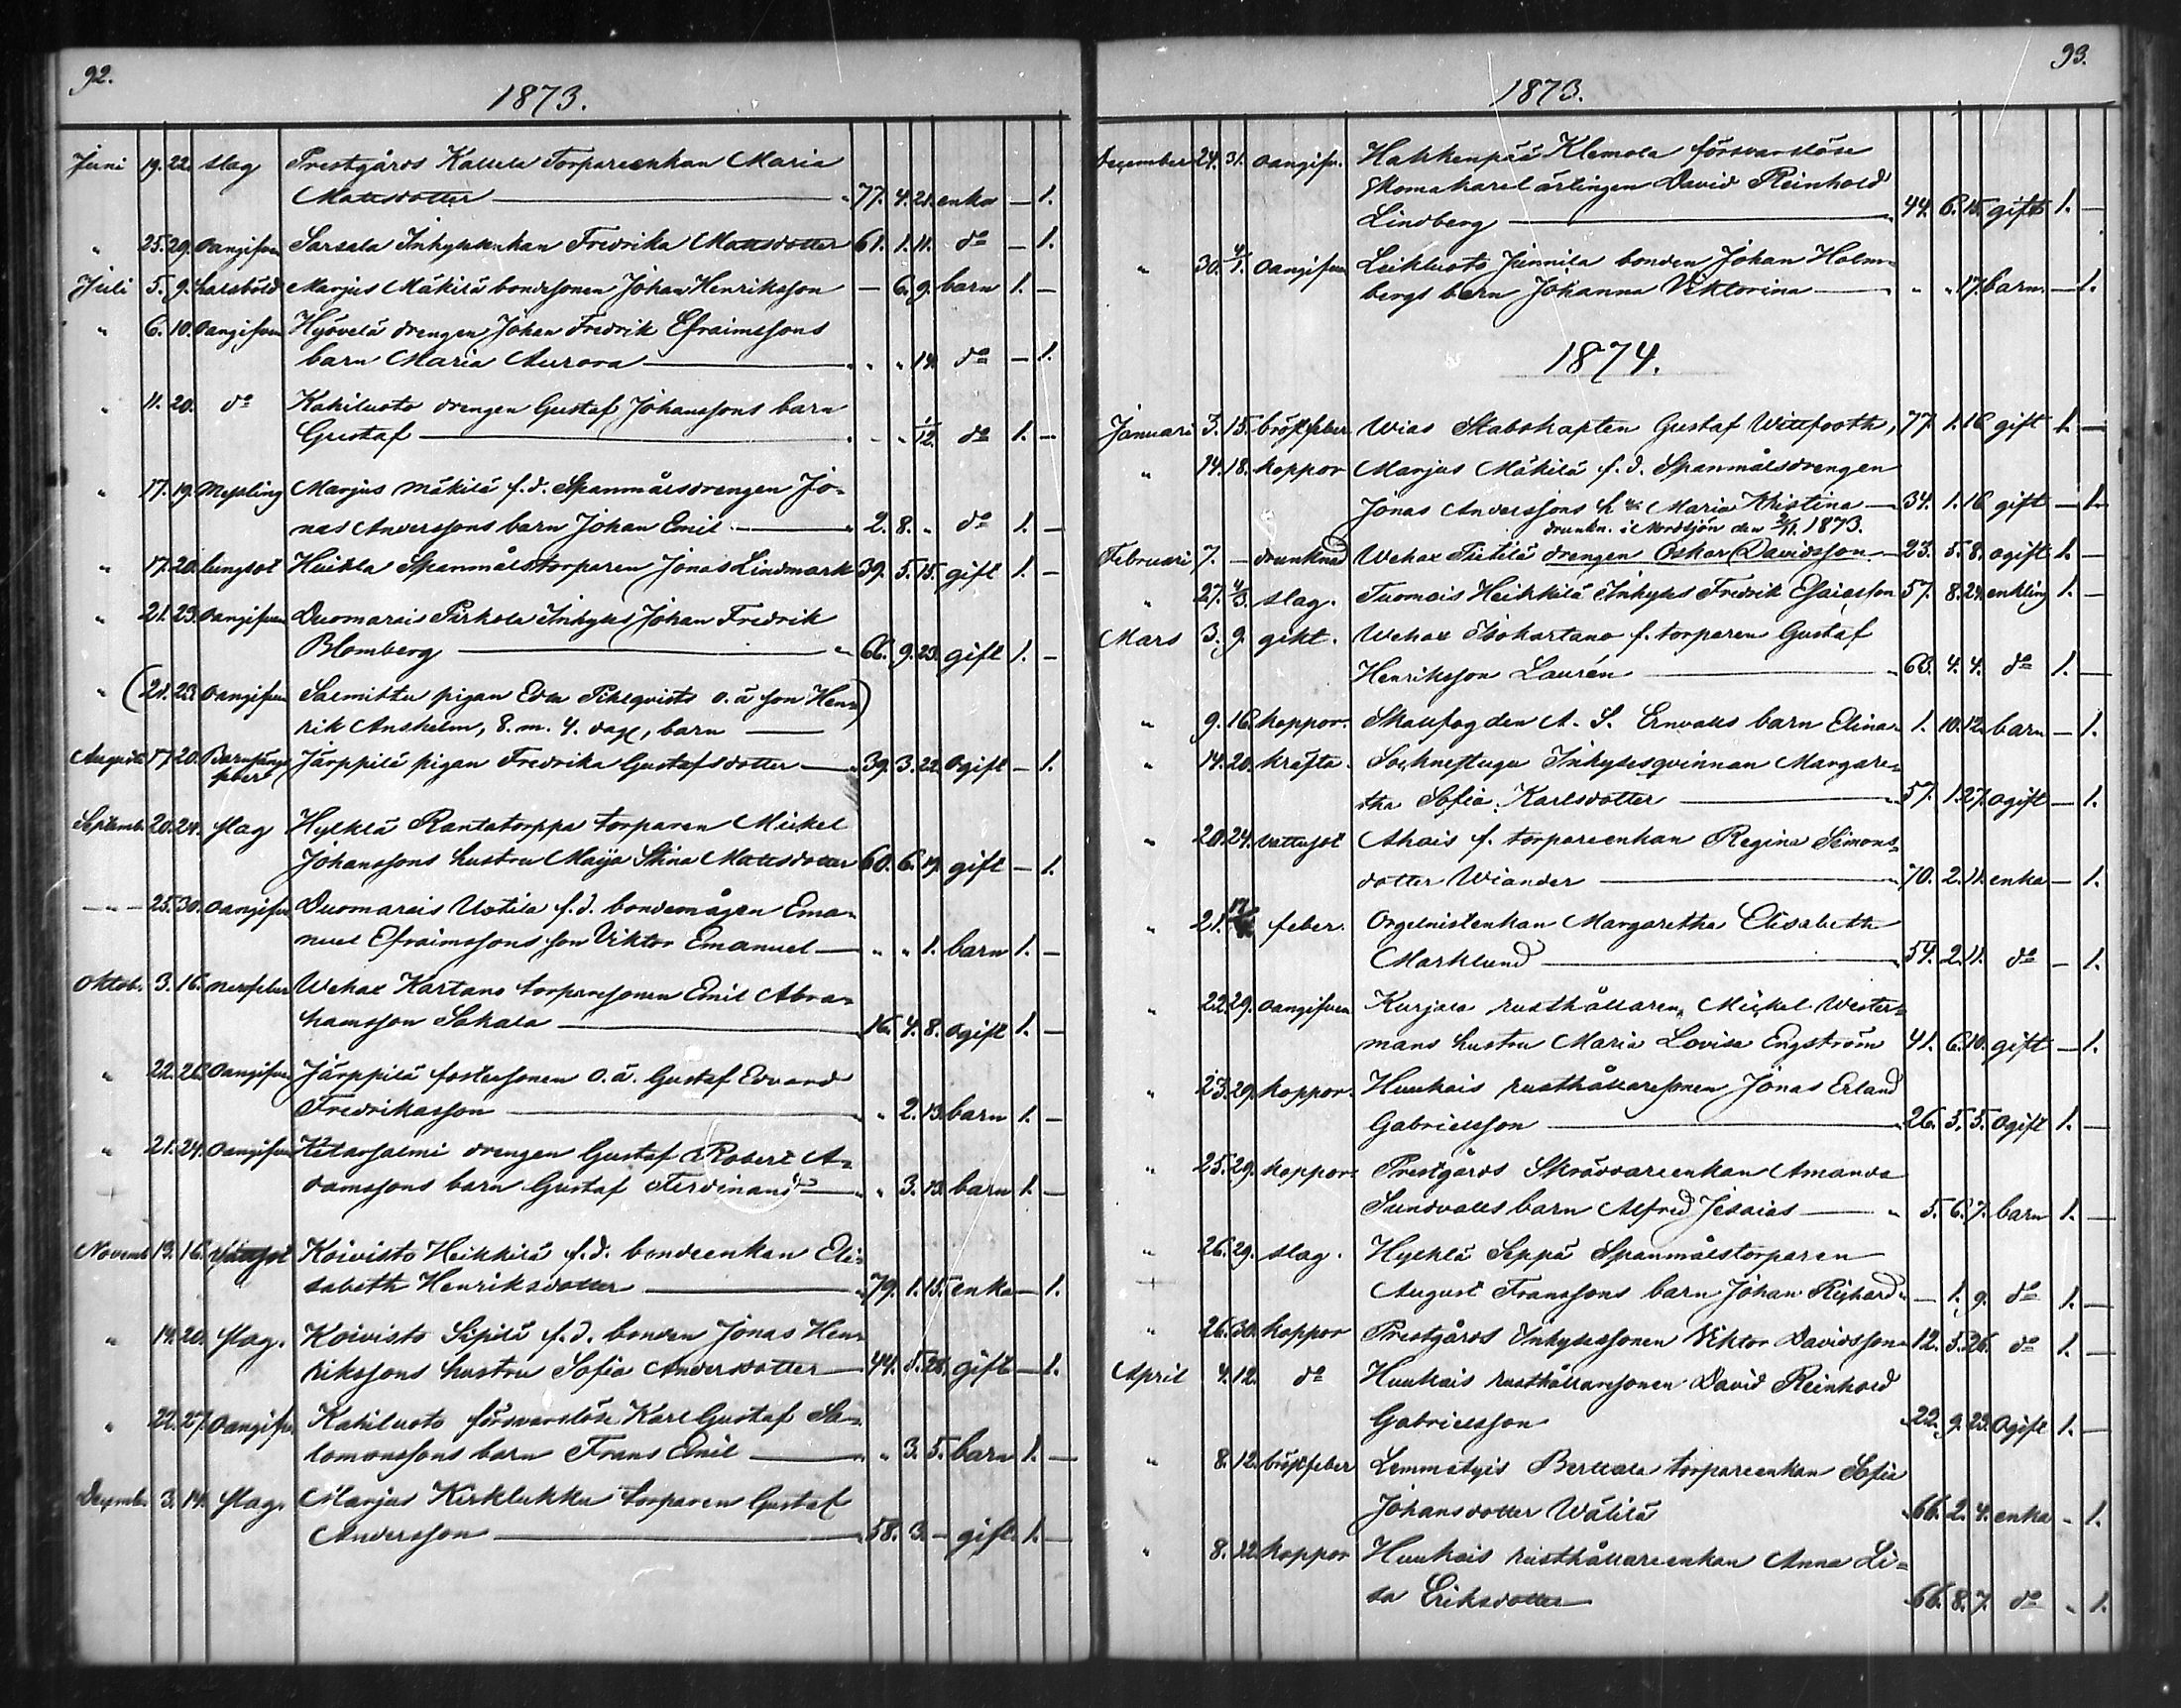 92.
1873.
Juni 19. 22. slag Prestgårds Kallela Torpareenkan Maria
Mattsdotter — 77. 4. 21. enka — 1.
" 25. 29. oangifven Sarsala Inhyseenkan Fredrika Mattsdotter 61. 1. 11. do — 1.
Juli 5. 9. halsböld Marjus Mäkilä bondesonen Johan Henriksson — 6. 9. barn 1. —
" 6. 10. oangifven Hyövelä drengen Johan Fredrik Efraimssons
barn Maria Aurora — " " 14. do — 1.
" 11. 20. do Kahiluoto drengen Gustaf Johanssons barn
Gustaf — " " 1/12 do 1. —
" 17. 19. Messling Marjus Mäkilä f.d. Spanmålsdrengen Jo-
nas Anderssons barn Johan Emil — 2. 8. " do 1. —
" 17. 20. lungsot Huikla Spanmålstorparen Jonas Lindmark 39. 5. 15. gift 1. —
" 21. 23. oangifven Duomarais Pirkola Inhyses Johan Fredrik
Blomberg — 66. 9. 23. gift 1. —
" (21. 23. oangifven Salmittu pigan Eva Pihlqvists o.ä. son Hen-)
rik Anshelm, 8. m. 4. dag, barn —
Augusti 17. 20. Barnsängs
feber Järppilä pigan Fredrika Gustafsdotter — 39. 3. 22. ogift — 1.
Septemb. 20. 24. slag Hylklä Rantatorppa torparen Mickel
Johanssons hustru Maija Stina Mattsdotter 60. 6. 19. gift — 1.
— " — 25. 30. oangifv. Duomarais Uotila f.d. bondemågen Ema-
nuel Efraimssons son Viktor Emanuel — " " 1. barn 1. —
Oktob. 3. 16. nervfeber Wehax Kartano torparesonen Emil Abra-
hamsson Sahala — 16. 4. 8. ogift 1. —
" 22. 26. oangifven Järppilä fostersonen o.ä. Gustaf Edvard
Fredriksson — " 2. 13. barn 1. —
" 21. 24. oangifven Ketarsalmi drengen Gustaf Robert A-
damssons barn Gustaf Ferdinand — " 3. 13. barn 1. —
Novemb. 13. 16. Koivisto Heikkilä f.d. bondeenkan Eli-
sabeth Henriksdotter — 79. 1. 15. enka — 1.
" 14. 20. slag. Koivisto Sipilä f.d. bonden Jonas Hen-
rikssons hustru Sofia Andersdotter — 44. 5. 28. gift — 1.
" 22. 27. oangifv. Kahiluoto försvarslöse Karl Gustaf Sa-
lomonssons barn Frans Emil — " 3. 5. barn 1. —
Decemb. 3. 14. slag. Marjus Kirklukku torparen Gustaf
Andersson — 58. 3. — gift. 1. —
93.
1873.
December 24. 31. oangifv. Hakkenpää Klemola försvarslöse
skomakarelärlingen David Reinhold
Lindberg — 44. 6. 15. gift 1. —
" 30. 4/1. oangifven Leikluoto Junnila bonden Johan Holm-
bergs barn Johanna Viktorina — " " 17. barn. — 1.
1874.
Januari 3. 15. bröstfeber Wias Stabskapten Gustaf Wittfooth, 77. 1. 16. gift 1. —
" 14. 18. koppor Marjus Mäkilä f.d. Spanmålsdrengen
Jonas Anderssons h:u Maria Kristina — 34. 1. 16. gift — 1.
drunkn. i Nordsjön den 2/11 1873.
Februari 7. — drunknad Wehax Piitilä drengen Oskar Davidsson 23. 5. 8. ogift 1. —
" 27. 4/3. slag. Tuomois Heikkilä Inhyses Fredrik Esaiasson 57. 8. 24. enkling 1. —
Mars 3. 9. gikt. Wehax Isokartano f. torparen Gustaf
Henriksson Laurén — 63. 4. 4. do 1. —
" 9. 16. koppor. Skallfogden A. S. Ernvalls barn Elina 1. 10. 12. barn — 1.
" 14. 20. kräfta. Sockenstugu Inhysesqvinnan Margare-
tha Sofia Karlsdotter — 57. 1. 27. ogift — 1.
" 20. 24. vattusot Ahais f. torpareenkan Regina Simons-
dotter Wiander — 70. 2. 11. enka — 1.
" 21. feber. Orgelnistenkan Margaretha Elisabeth
Marklund — 54. 2. 11. do — 1.
" 22. 29. oangifven Kurjala rusthållaren Mickel Wester-
mans hustru Maria Lovisa Engström 41. 6. 10. gift — 1.
" 23. 29. koppor. Huukais rusthållaresonen Jonas Erland
Gabrielsson — 26. 5. 5. ogift 1. —
" 25. 29. koppor. Prestgårds Skräddareenkan Amanda
Sundvalls barn Alfred Jesaias — 5. 6. 7. barn 1. —
" 26. 29. slag. Hylklä Seppä Spanmålstorparen
August Franssons barn Johan Rikhard — 1. 9. do 1. —
" 26. 30. koppor Prestgårds Inhysessonen Viktor Davidsson 12. 5. 26. do 1. —
April 4. 12. do Huukais rusthållaresonen David Reinhold
Gabrielsson 22. 9. 23. ogift 1. —
" 8. 12. bröstfeber Lemmetyis Berttala torpareenkan Sofia
Johansdotter Wälilä 66. 2. 4. enka " 1.
" 8. 12. koppor Huukais rusthållareenkan Anna Li-
sa Eriksdotter 66. 8. 7. do " 1.